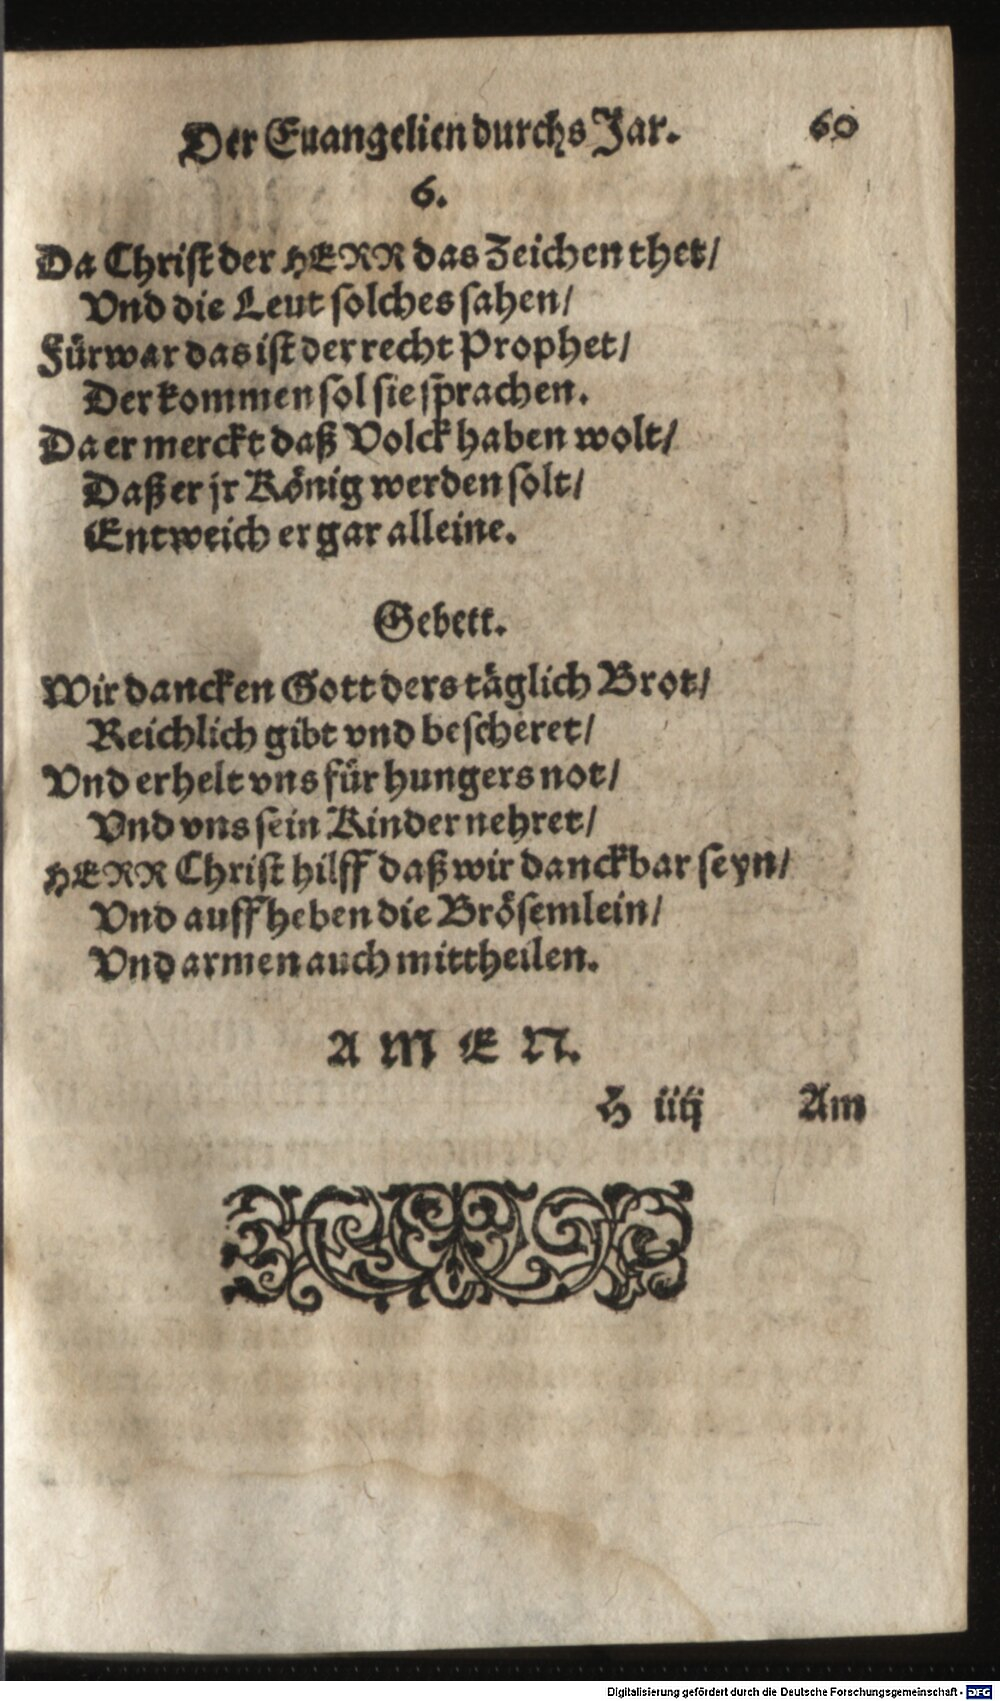 Der Euangelien durchs Jar. 60
6.
Da Christ der HERR das Zeichen thet/
Vnd die Leut solches sahen/
Fürwar das ist der recht Prophet/
Der kommen sol sie sprachen.
Da er merckt daß Volck haben wolt/
Daß er jr König werden solt/
Entweich er gar alleine.
Gebett.
Wir dancken Gott ders täglich Brot/
Reichlich gibt vnd bescheret/
Vnd erhelt vns für hungers not/
Vnd vns sein Kinder nehret/
HERR Christ hilff daß wir danckbar seyn/
Vnd auffheben die Brösemlein/
Vnd armen auch mittheilen.
AMEN.
H iiij Am
Digitalisierung gefördert durch die Deutsche Forschungsgemeinschaft - DFG